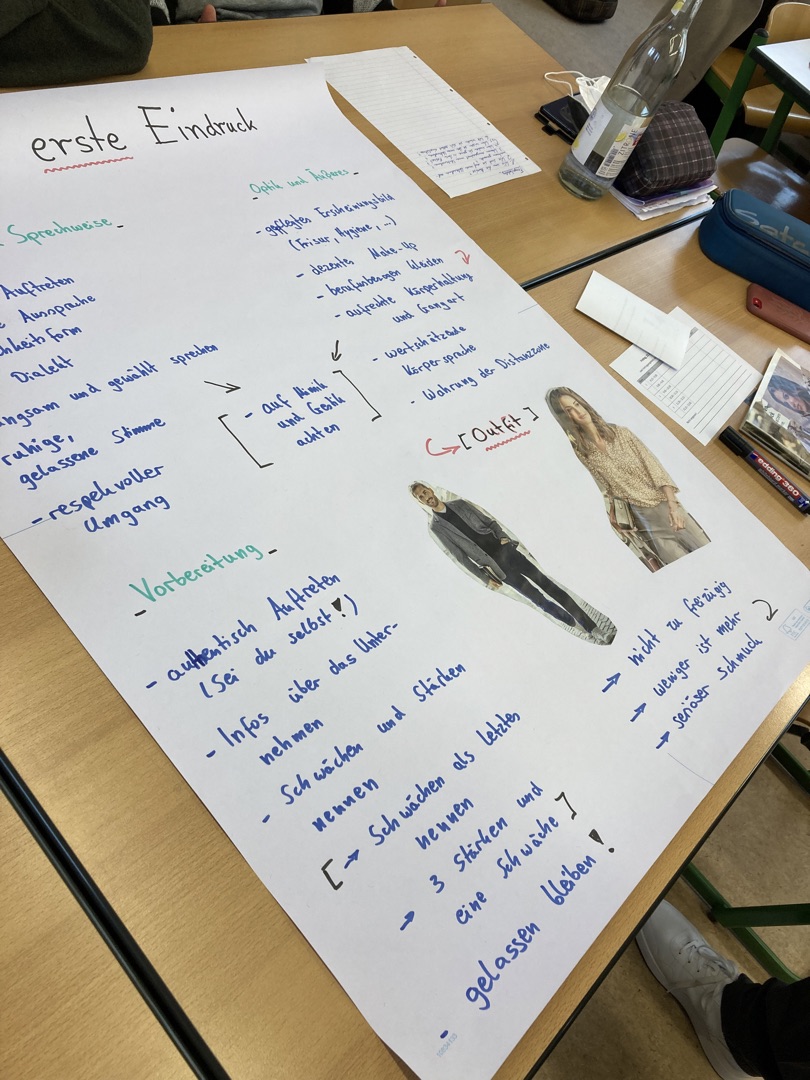 erste Eindruck
Sprechweise -
Auftreten
Aussprache
Dialekt
langsam und gewählt sprechen
ruhige,
gelassene Stimme
- respektvoller
Umgang
Optik und Äußeres -
- gepflegtes Erscheinungsbild
(Frisur, Hygiene, ...)
- dezentes Make-Up
- berufsbezogen kleiden
- aufrechte Körperhaltung
und Gangart
- wertschätzende
Körpersprache
- Wahrung der Distanzzone
[ - auf Mimik
und Gestik
achten ]
[Outfit]
→ nicht zu freizügig
→ weniger ist mehr
→ seriöser Schmuck
- Vorbereitung -
- authentisch Auftreten
(Sei du selbst!)
- Infos über das Unter-
nehmen
- Schwächen und Stärken
nennen
[→ Schwächen als letztes
nennen
→ 3 Stärken und
eine Schwäche]
- gelassen bleiben!
edding 360